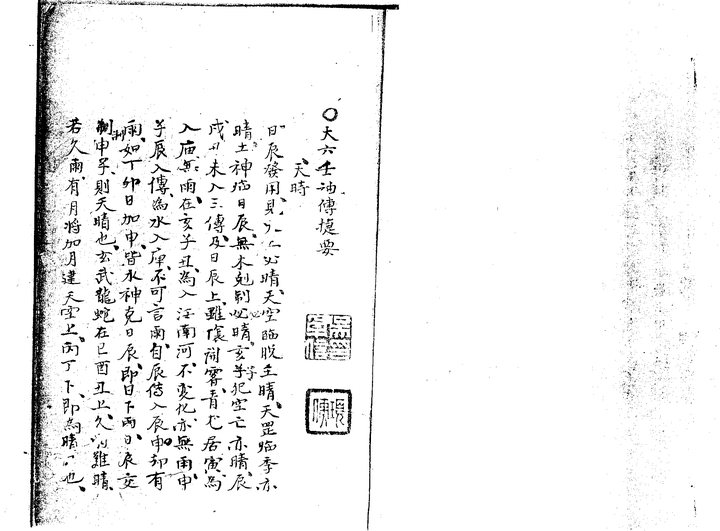 ○大六壬神傳捷要
天時
日辰發用見 必晴天空臨脫主晴天罡臨季亦
晴土神臨日辰無木剋制必晴亥子犯空亡亦晴辰
戌丑未入三傳及日辰上雖陰開霽青龙居寅為
入庙無雨在亥子丑為入江南河不变化亦無雨申
子辰入傳為水入庫不可言雨自辰傳入辰申却有
雨如丁卯日加申皆水神克日辰即日下雨日辰交
制申子則天晴也玄武龍蛇在巳酉丑上久 难晴
若久雨有月將加月建天空上丙丁下即為晴 也